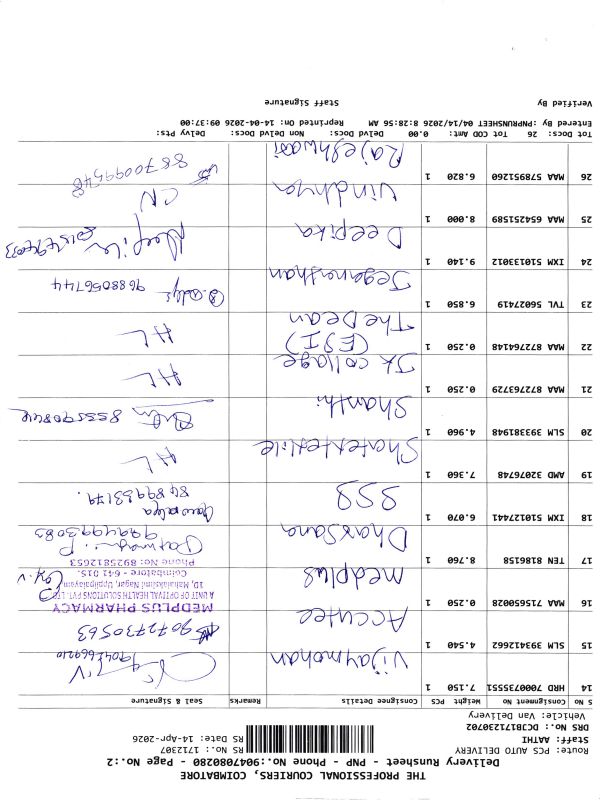 THE PROFESSIONAL COURIERS, COIMBATORE
Delivery Runsheet - PNP - Phone No.:9047080280 - Page No.:2
Route: PCS AUTO DELIVERY
Staff: AATHI
DRS No.: DCJB171230702
Vehicle: Van Delivery
RS No.: 1712307
RS Date: 14-Apr-2026
S No Consignment No Weight PCS Consignee Details Remarks Seal & Signature
14 HRD 7000735551 7.150 1 Vijaymohan 9042669210
15 SLM 393412662 4.540 1 Accutec 9072730563
16 MAA 715650028 0.250 1 medplus
MEDPLUS PHARMACY
A UNIT OF OPTIVAL HEALTH SOLUTIONS PVT. LTD
10, Mahalakshmi Nagar, Uppilipalayam
Coimbatore - 641 015.
Phone No: 8925812653
17 TEN 8186158 8.760 1 Dharsana 9994993083
18 IXM 510127441 6.070 1 SSB
19 AMD 32076748 7.360 1 HL
20 SLM 393381948 4.960 1 Shanthi
21 MAA 872763729 0.250 1 Jk collage HL
22 MAA 872764148 0.250 1 (ESI) The Dean HL
23 TVL 56027419 6.850 1 Jeganathan 9688056744
24 IXM 510133012 9.140 1 Deepika Deepika
25 MAA 654251589 8.000 1 Vindhya CN
26 MAA 578951260 6.820 1 Rajeshwari 8870099548
Tot Docs: 26 Tot COD Amt: 0.00 Delvd Docs: Non Delvd Docs: Delvy Pts:
Entered By: PNPRUNSHEET 04/14/2026 8:28:56 AM Reprinted On: 14-04-2026 09:37:00
Verified By Staff Signature